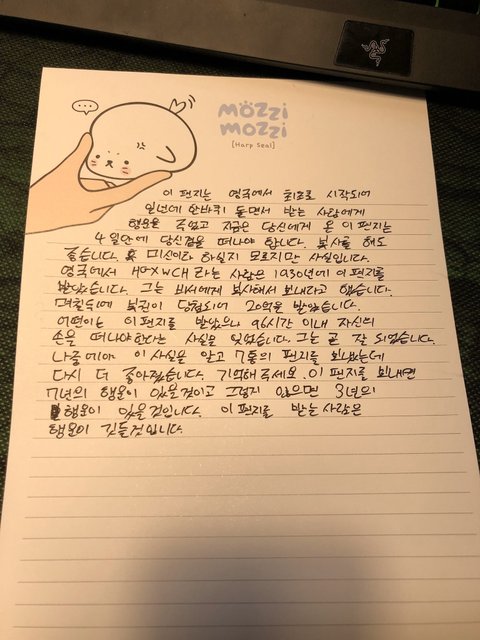 mözzi
mozzi
[Harp Seal]
이 편지는 영국에서 최초로 시작되어
일년에 한바퀴 돌면서 받는 사람에게
행운을 주었고 지금은 당신에게 온 이 편지는
4일안에 당신곁을 떠나야 합니다. 복사를 해도
좋습니다. 혹 미신이라 하실지 모르지만 사실입니다.
영국에서 HGXWCH 라는 사람은 1930년에 이 편지를
받았습니다. 그는 비서에게 복사해서 보내라고 했습니다.
며칠뒤에 복권이 당첨되어 20억을 받았습니다.
어떤이는 이 편지를 받았으나 96시간 이내 자신의
손을 떠나야한다는 사실을 잊었습니다. 그는 곧 사직되었습니다.
나중에야 이 사실을 알고 7통의 편지를 보냈는데
다시 더 좋아졌습니다. 기억해주세요. 이 편지를 보내면
7년의 행운이 있을것이고 그렇지 않으면 3년의
행운이 있을것입니다. 이 편지를 받는 사람은
행운이 깃들것입니다.